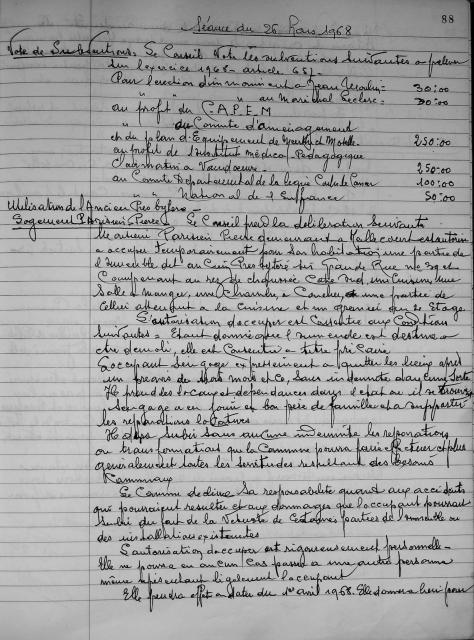 88
Séance du 26 Mars 1968
Vote de Subventions = Le Conseil Vote les subventions suivantes a prelever
sur l'exercice 1968 - article 657 -
Pour l'erection d'un monument a Jean Moulin = 30:00
" " " " au Maréchal Leclerc = 30:00
au profit du C.A.P.E.M
" du Comité d'aménagement
et du plan d'Equipement de Meurthe et Moselle. 250:00
au profit de l'Institut médico-Pédagogique
Clairmatin a Vandoeuvre = 250:00
au Comité Departemental de la ligue Contre le Cancer 100:00
" National de l'Enfance 50:00
Utilisation de l'Ancien Presbytère
Logement Parisien Pierre = Le Conseil prend la délibération Suivante
Parisien Pierre demeurant a est autorisé
a occuper temporairement pour son habitation une partie de
l'immeuble dit ancien Presbytère sis Grande Rue n° 39 et
Comprenant au rez de chaussée Coté Sud, une Cuisine, Une
Salle a manger, une Chambre, a Coucher, et une partie de
Cellier attenant a la Cuisine et un grenier au 2e Etage
L'autorisation d'occuper est Consentie aux Conditions
suivantes = Etant donné que l'immeuble est destiné a
etre demoli, elle est Consentie a titre précaire
L'occupant s'engage expressément a quitter les lieux après
un préavis de trois mois et Ce, sans indemnité d'aucune Sorte
Il prend les locaux et dependances dans l'etat ou il se trouve
s'engage a en jouir en bon père de famille et a supporter
les réparations locatives
Il devra subir sans aucune indemnité les reparations
ou transformations que la Commune pourra faire effectuer et plus
généralement toutes les servitudes resultant des besoins
Communaux
La Commune decline Sa responsabilité quant aux accidents
qui pourraient resulter et aux dommages que l'occupant pourrait
subir du fait de la Vetusté de Certaines parties de l'immeuble ou
des installations existantes
L'autorisation d'occuper est rigoureusement personnelle -
Elle ne pourra en aucun Cas passer a une autre personne
même representant légalement l'occupant
Elle prendra effet a dater du 1er avril 1968. Elle donnera lieu pour